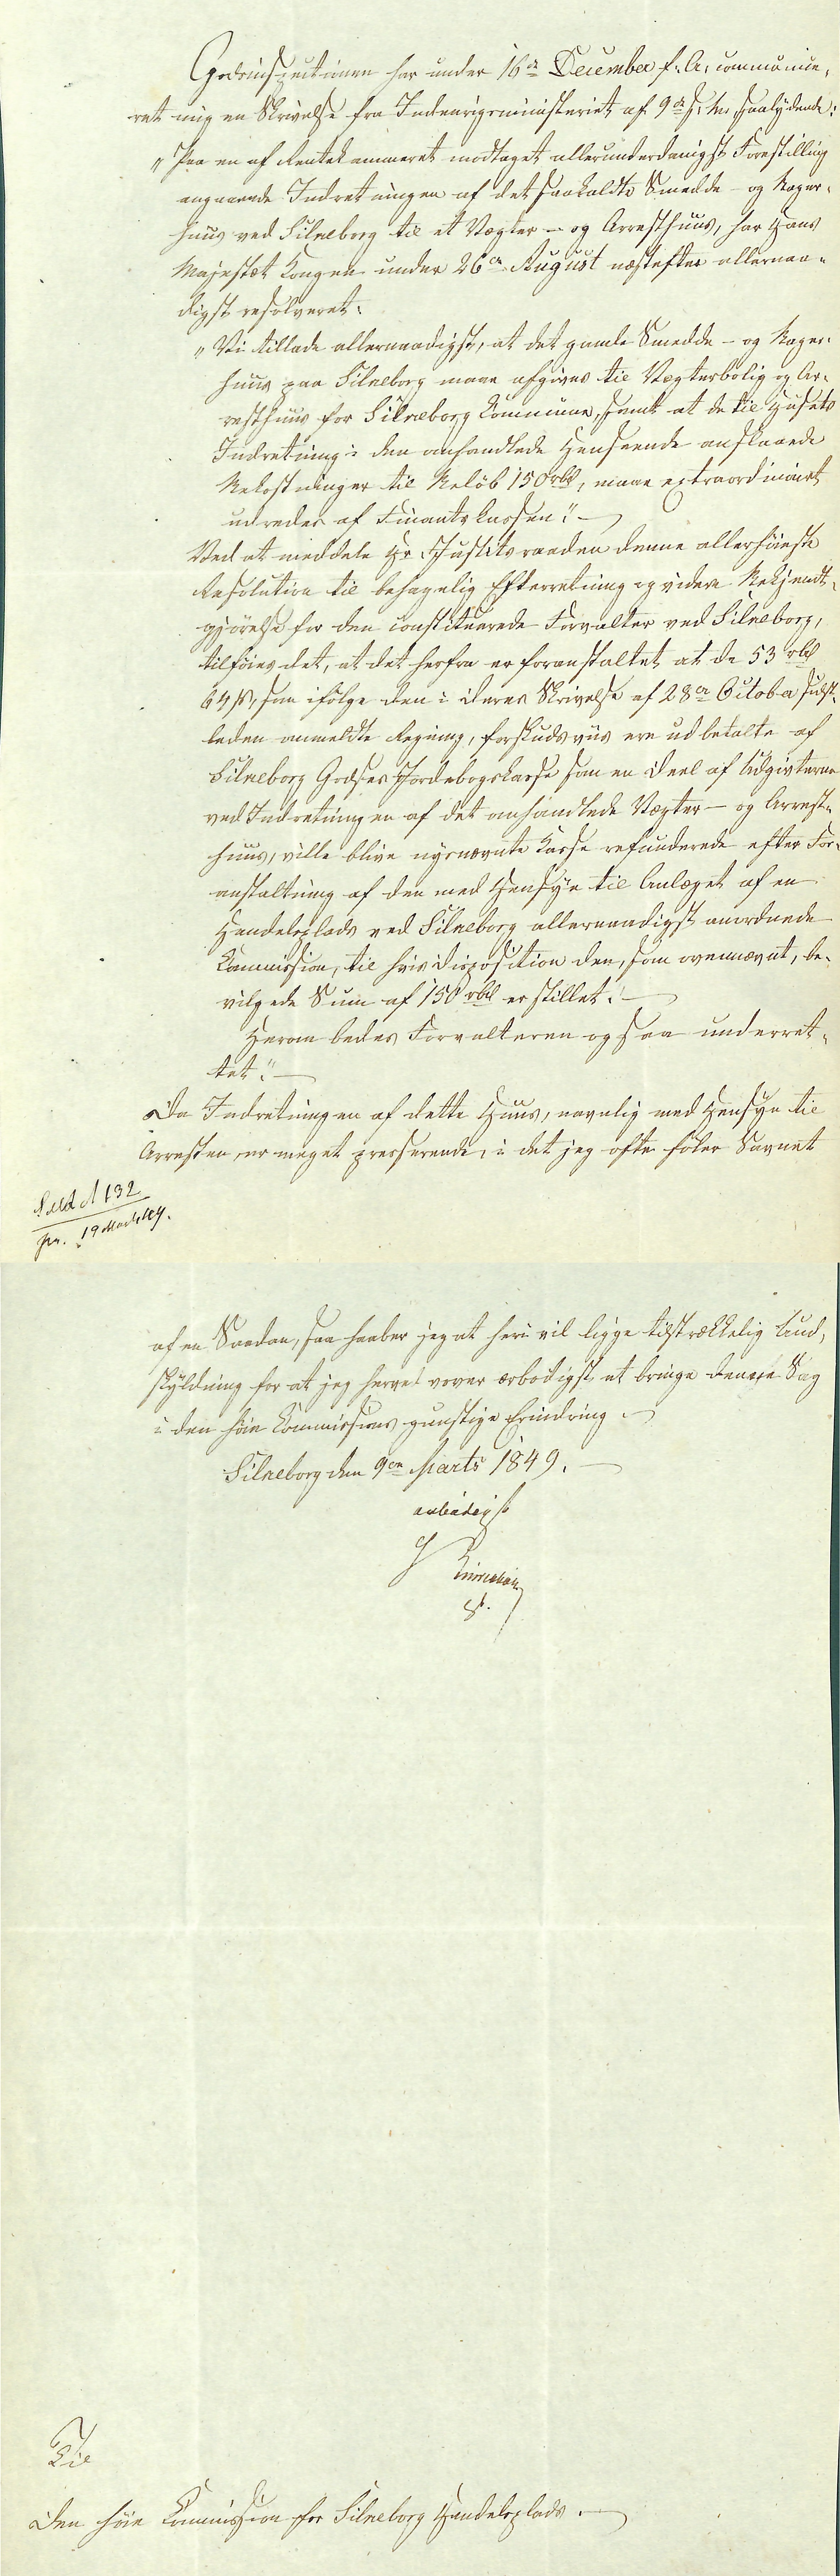 Godsinspectionen har under 16de December f. A. communice,
ret mig en Skrivelse fra Indenrigsministeriet af 9de s. M. saalydende:
"Paa en af Rentekammeret modtaget allerunderdanigst Forestilling
angaaende Indretningen af det saakaldte Smedde- og Bager-
huus ved Silkeborg til et Vægter- og Arresthuus, har Hans
Majestæt Kongen under 26de August næstefter allernaa-
digst resolveret:
"Vi tillade allernaadigst, at det gamle Smedde- og Bager-
huus paa Silkeborg maae afgives til Vægterbolig og Ar-
resthuus for Silkeborg Commune, samt at de til Husets
Indretning i den anhandlede Henseende anslaaede
Bekostninger til Beløb 150 rbd, maae extraordinairt
udredes af Finantskassen." —
Ved at meddele Hr. Justitsraaden denne allerhøieste
Resolution til behagelig Efterretning og videre Bekjendt-
gjørelse for den constituerede Forvalter ved Silkeborg,
tilføies det, at det herfra er foranstaltet at de 53 rbd
64 s, som ifølge den i Deres Skrivelse af 28de October sidst-
leden anmeldte Regning, forskudsviis ere udbetalte af
Silkeborg Godses Jordebogskasse som en Deel af Udgivterne
ved Indretningen af det anhandlede Vægter- og Arrest-
huus, ville blive nysnævnte Kasse refunderede efter For-
anstaltning af den med Hensyn til Anlæget af en
Handelsplads ved Silkeborg allernaadigst anordnede
Commission, til hvis Disposition den, som ovennævnt, be-
vilgede Sum af 150 rbd er stillet. —
Herom bedes Forvalteren ogsaa underret-
tet." —
Da Indretningen af dette Huus, navnlig med Hensyn til
Arresten er meget presserende, i det jeg ofte føler Savnet
132
pr. 19 Marts 49.
af en Saadan, saa haaber jeg at heri vil ligge tilstrækkelig Und,
skyldning for at jeg herved vover ærbødigst at bringe denne Sag
i den høie Commissions gunstige Erindring. —
Silkeborg den 9de Marts 1849. —
ærbødigst
Til
Den høie Commission for Silkeborg Handelsplads. —